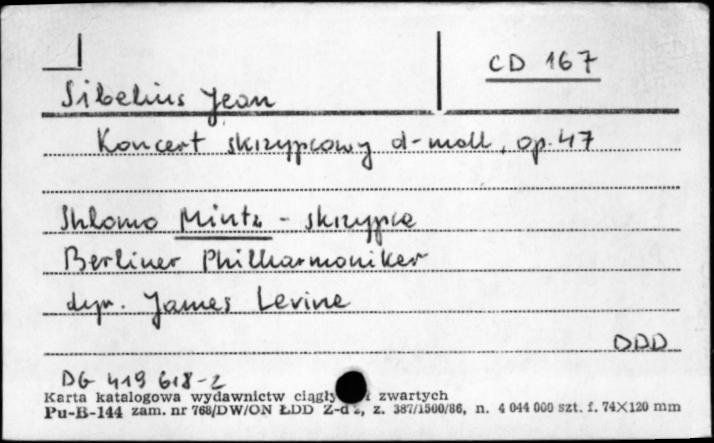 CD 167
Sibelius Jean
Koncert skrzypcowy d-moll, op. 47
Shlomo Mintz - skrzypce
Berliner Philharmoniker
dyr. James Levine
DDD
DG 419 618-2
Karta katalogowa wydawnictw ciągły zwartych
Pu-B-144 zam. nr 768/DW/ON ŁDD Z-d 2, z. 387/1500/86, n. 4 044 000 szt. f. 74×120 mm